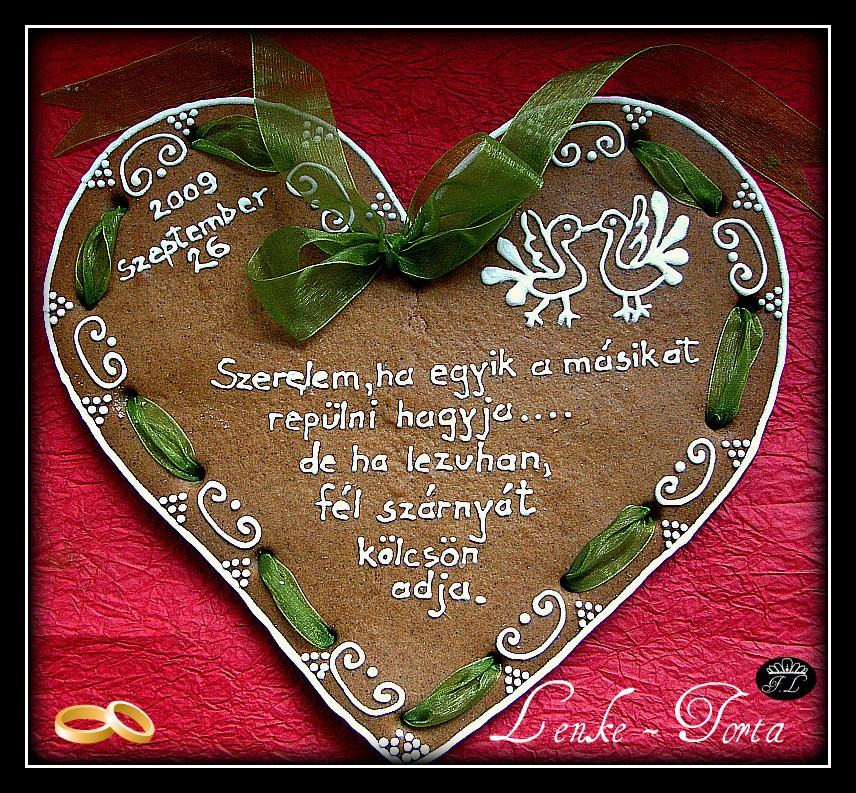 2009
szeptember
26
Szerelem, ha egyik a másikat
repülni hagyja....
de ha lezuhan,
fél szárnyát
kölcsön
adja.
F.L
Lenke ~ Torta